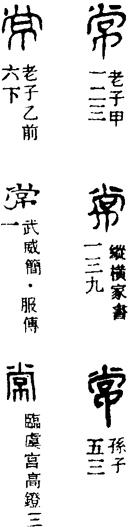 常
老子甲
一二三
常
縱橫家書
一三九
常
孫子
五三
常
老子乙前
六下
常
武威簡·服傳
一
常
臨虞宮高鐙二